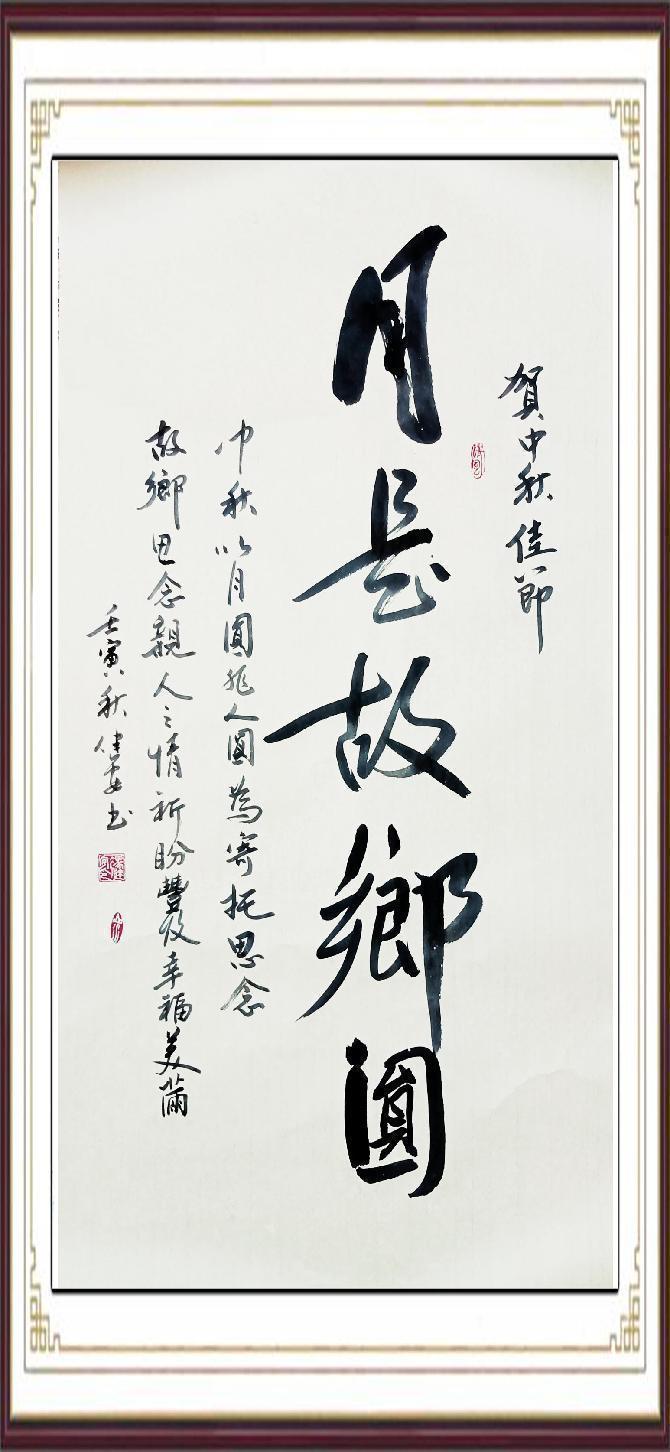 賀中秋佳節
月是故鄉圓
中秋以月圓兆人圓為寄托思念
故鄉思念親人之情祈盼豐收幸福美滿
壬寅秋佳安书